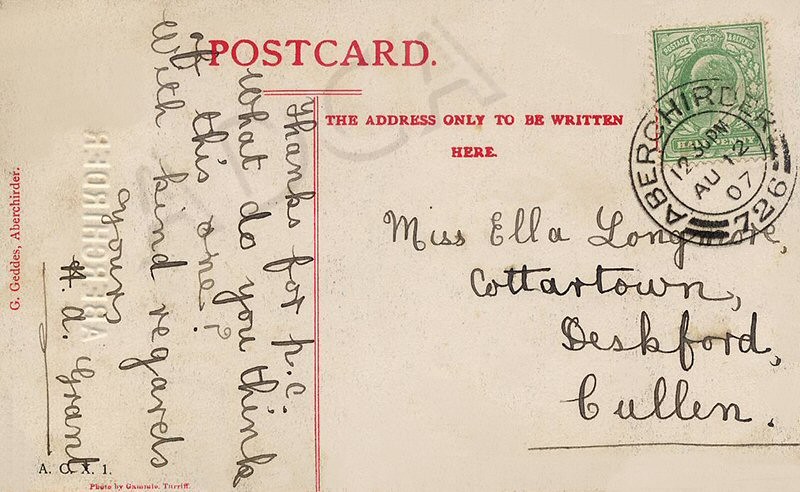 POSTCARD.
THE ADDRESS ONLY TO BE WRITTEN
HERE.
Thanks for p.c.
what do you think
of this one?
With kind regards
Yours
A. Grant
Miss Ella Longmore,
Cottartown,
Deskford,
Cullen.
POSTAGE & REVENUE
HALFPENNY
ABERCHIRDER
AU 12
07
726
G. Geddes, Aberchirder.
ABERCHIRDER
A. C. X. 1.
Photo by Gammie, Turriff.